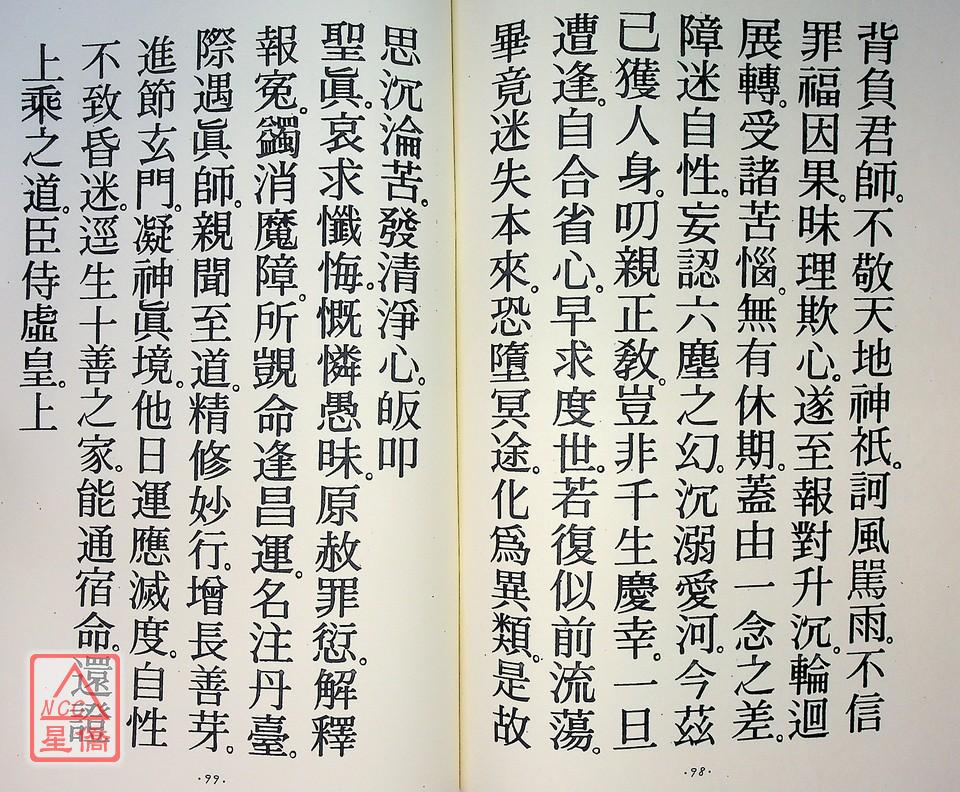 背負君師。不敬天地神祇。訶風罵雨。不信
罪福因果。昧理欺心。遂至報對升沉。輪迴
展轉。受諸苦惱。無有休期。蓋由一念之差。
障迷自性。妄認六塵之幻。沉溺愛河。今茲
已獲人身。叨親正教。豈非千生慶幸。一旦
遭逢。自合省心。早求度世。若復似前流蕩。
畢竟迷失本來。恐墮冥途。化爲異類。是故
·98·
思沉淪苦。發清淨心。皈叩
聖眞。哀求懺悔。慨憐愚昧。原赦罪愆。解釋
報冤。蠲消魔障。所覬命逢昌運。名注丹臺。
際遇眞師。親聞至道。精修妙行。增長善芽。
進節玄門。凝神眞境。他日運應滅度。自性
不致昏迷。逕生十善之家。能通宿命。還證
上乘之道。臣侍虛皇。上
·99·
NCC
星僑